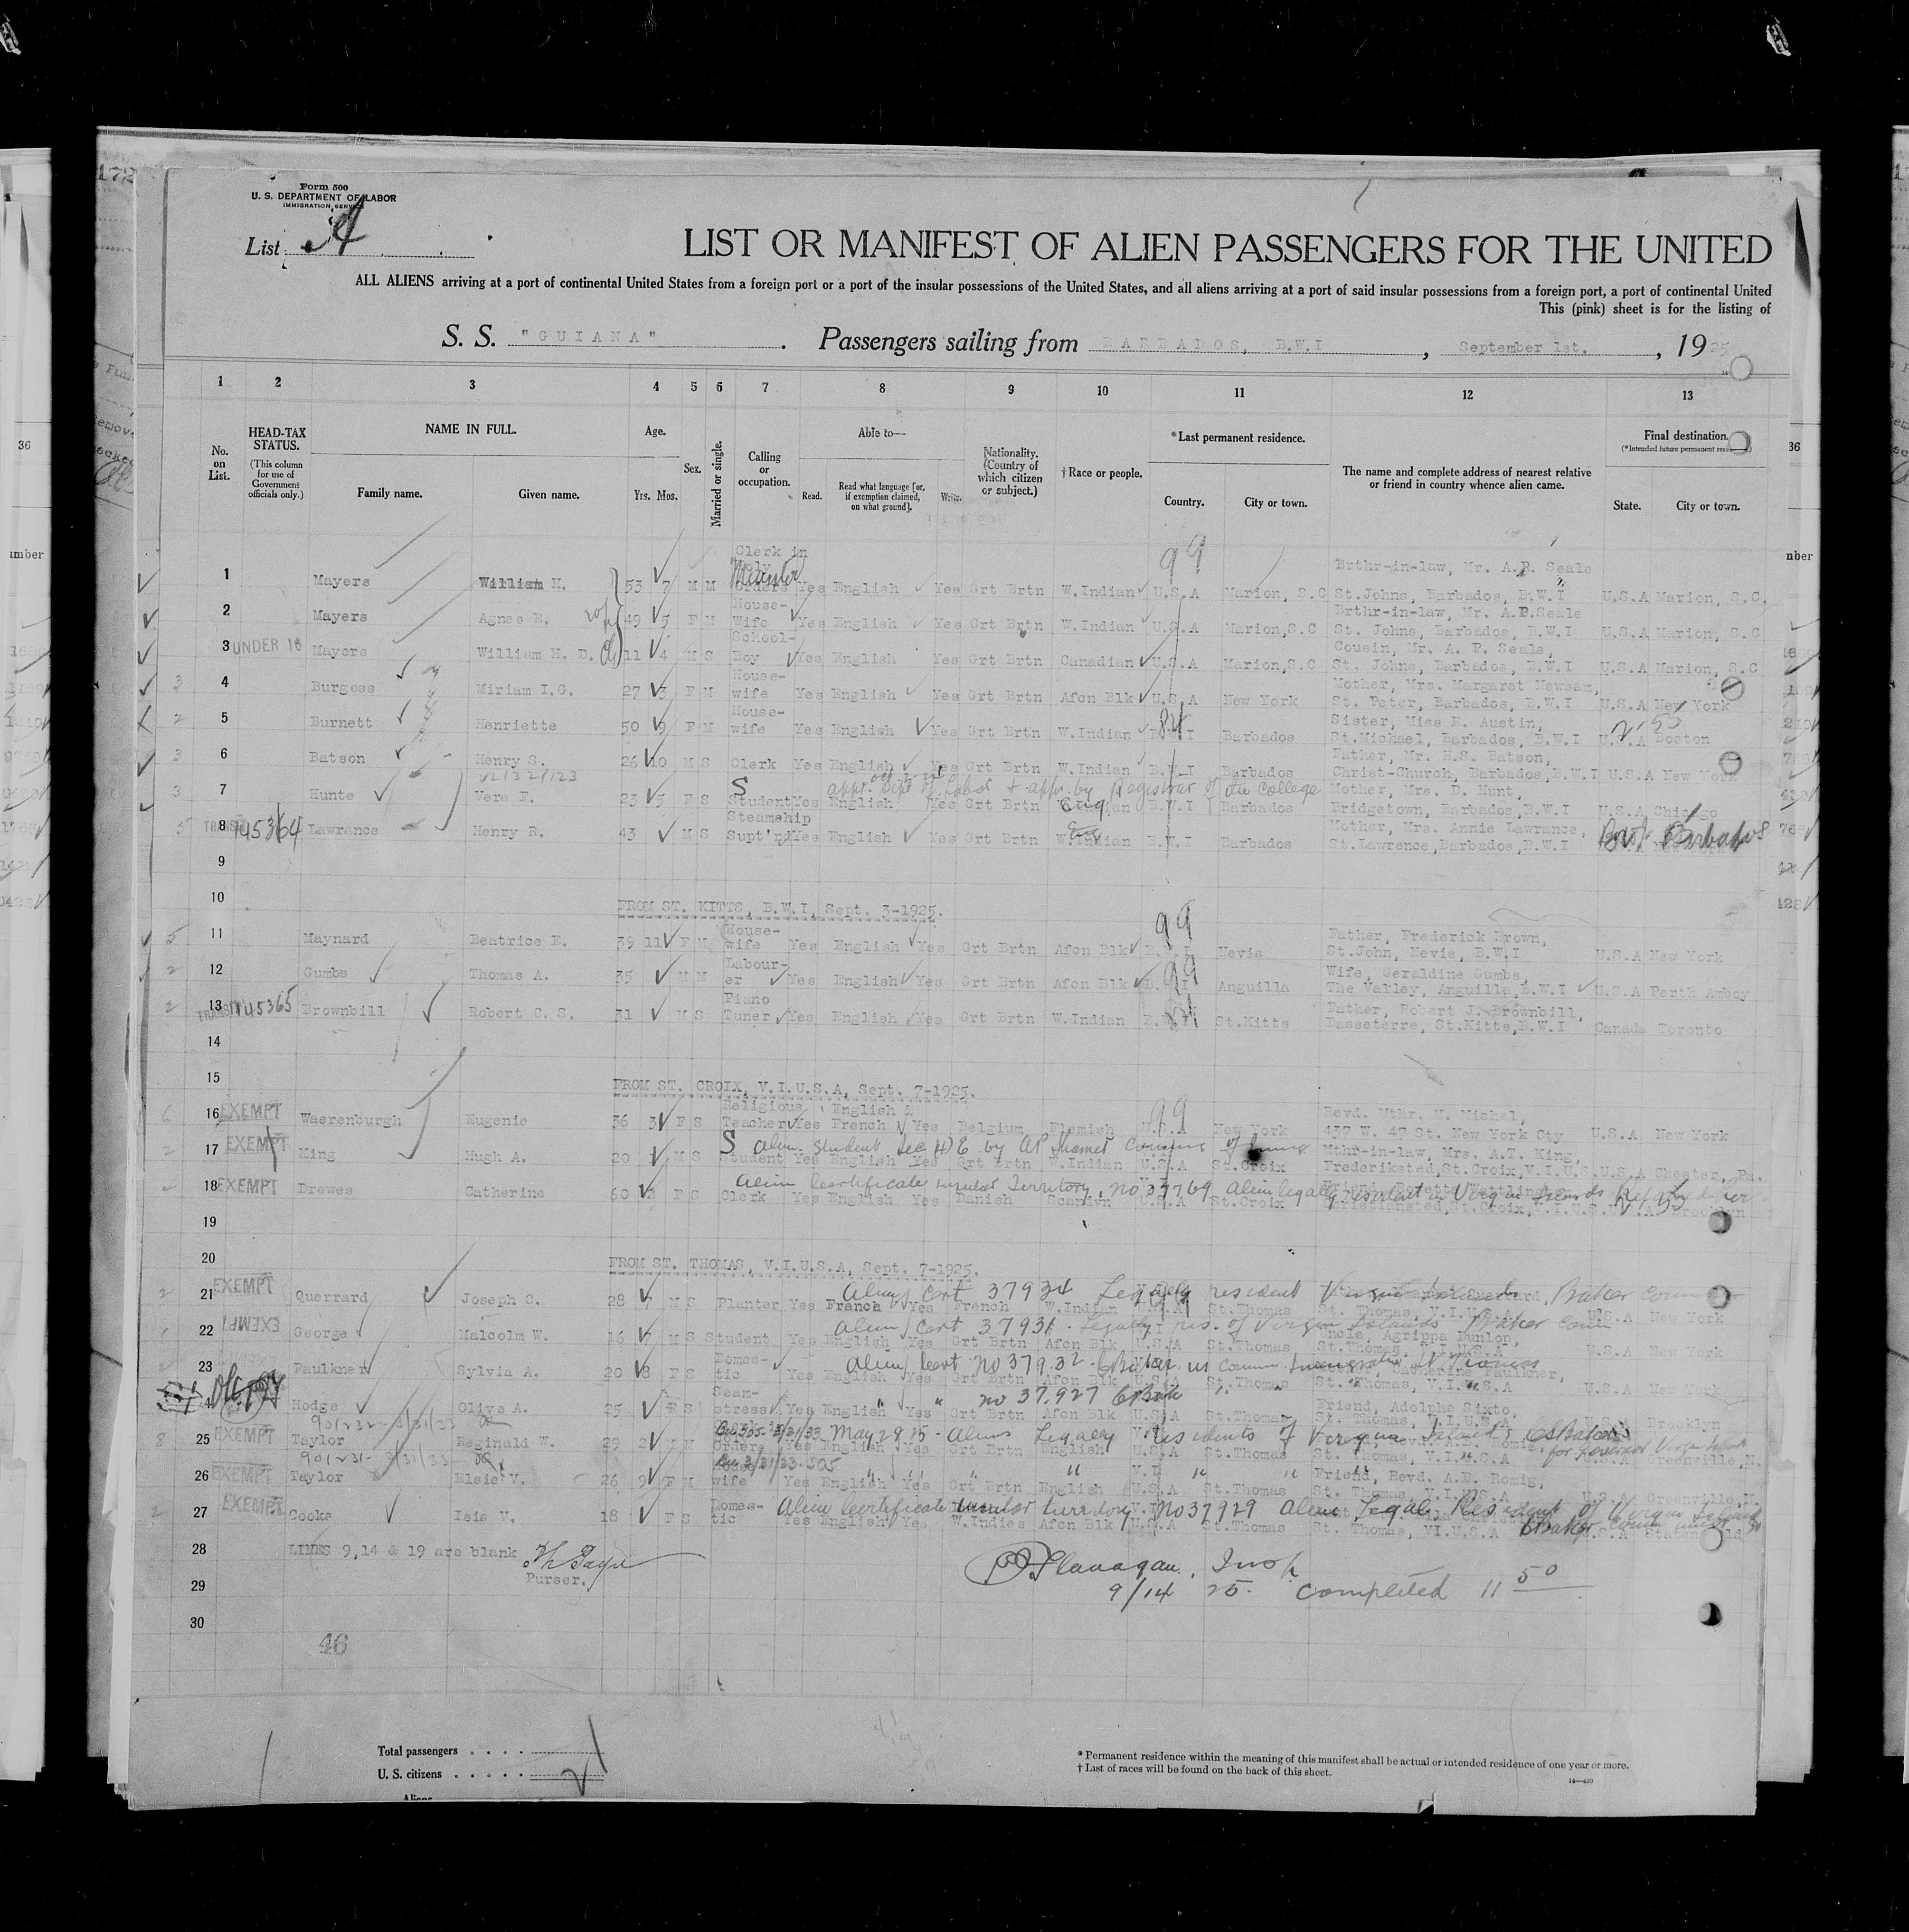 Form 500
U. S. DEPARTMENT OF LABOR
IMMIGRATION SERVICE
List A
LIST OR MANIFEST OF ALIEN PASSENGERS FOR THE UNITED
ALL ALIENS arriving at a port of continental United States from a foreign port or a port of the insular possessions of the United States, and all aliens arriving at a port of said insular possessions from a foreign port, a port of continental United
This (pink) sheet is for the listing of
S. S. "GUIANA". Passengers sailing from BARBADOS, B.W.I, September 1st., 1925
1 2 3 4 5 6 7 8 9 10 11 12 13
No. on List.
HEAD-TAX STATUS.
(This column for use of Government officials only.)
NAME IN FULL.
Family name. Given name.
Age.
Yrs. Mos.
Sex.
Married or single.
Calling or occupation.
Able to—
Read. Read what language [or, if exemption claimed, on what ground]. Write.
Nationality. (Country of which citizen or subject.)
†Race or people.
*Last permanent residence.
Country. City or town.
The name and complete address of nearest relative or friend in country whence alien came.
Final destination.
(*Intended future permanent
State. City or town.
99
1 Mayers William H. 53 7 M M Clerk in Holy Orders Minister Yes English Yes Grt Brtn W.Indian U.S.A Marion, S.C Brthr-in-law, Mr. A.P. Seale St.Johns, Barbados, B.W.I U.S.A Marion, S.C.
2 Mayers Agnes E. 49 5 F M House-Wife Yes English Yes Grt Brtn W.Indian U.S.A Marion,S.C Brthr-in-law, Mr. A.P.Seale St. Johns, Barbados, B.W.I U.S.A Marion, S.C
3 UNDER 16 Mayers William H. D. 11 4 M S School-Boy Yes English Yes Grt Brtn Canadian U.S.A Marion,S.C Cousin, Mr. A. P. Seale, St. Johns, Barbados, B.W.I U.S.A Marion, S.C
4 Burgess Miriam I.G. 27 3 F M House-wife Yes English Yes Grt Brtn Afcn Blk U.S.A New York Mother, Mrs. Margaret Newsam, St. Peter, Barbados, B.W.I U.S.A New York
5 Burnett Henriette 50 9 F M House-wife Yes English Yes Grt Brtn W.Indian B.W.I Barbados Sister, Miss E. Austin, St.Michael, Barbados, B.W.I U.S.A Boston
6 Batson Henry S. 26 10 M S Clerk Yes English Yes Grt Brtn W.Indian B.W.I Barbados Father, Mr. H.S. Batson, Christ-Church, Barbados,B.W.I U.S.A New York
appr. Dept of Labor & appr. by Registrar of the College
7 Hunte Vera F. 23 5 F S Student Yes English Yes Grt Brtn B.W.I Barbados Mother, Mrs. D. Hunt, Bridgetown, Barbados,B.W.I U.S.A Chicago
8 TRANSIT 145364 Lawrance Henry R. 43 M S Steamship Supt'nd Yes English Yes Grt Brtn W.Indian B.W.I Barbados Mother, Mrs. Annie Lawrance, St.Lawrence,Barbados,B.W.I Barbados
9
10 FROM ST. KITTS, B.W.I, Sept. 3-1925.
99
11 Maynard Beatrice E. 39 11 F M House-wife Yes English Yes Grt Brtn Afcn Blk B.W.I Nevis Father, Frederick Brown, St.John, Nevis, B.W.I U.S.A New York
12 Gumbs Thomas A. 35 M M Labour-er Yes English Yes Grt Brtn Afcn Blk B.W.I Anguilla Wife, Geraldine Gumbs, The Valley, Anguilla,B.W.I U.S.A Perth Amboy
13 TRANSIT 145365 Brownbill Robert C. S. 31 M S Piano Tuner Yes English Yes Grt Brtn W.Indian B.W.I St.Kitts Father, Robert J. Brownbill, Basseterre, St.Kitts,B.W.I Canada Toronto
14
15 FROM ST. CROIX, V.I.U.S.A, Sept. 7-1925.
99
16 EXEMPT Waerenburgh Eugenie 36 3 F S Religious Teacher Yes English & French Yes Belgium Flemish U.S.A New York Revd. Mthr. M. Michel, 437 W. 47 St. New York Cty U.S.A New York
17 EXEMPT King Hugh A. 20 M S Student Yes English Yes Grt Brtn W.Indian U.S.A St.Croix Mthr-in-law, Mrs. A.T. King, Frederiksted,St.Croix,V.I.U.S. U.S.A Chester, Pa.
Alien Certificate Insular Territory, no 37769 Alien legally resident in Virgin Islands
18 EXEMPT Drewes Catherine 60 F S Clerk Yes English Yes Danish Scandvn U.S.A St.Croix Christiansted,St.Croix,V.I.U.S. Brooklyn
19
20 FROM ST. THOMAS, V.I.U.S.A, Sept. 7-1925.
Alien Cert 37934 Legally resident
21 EXEMPT Querrard Joseph C. 28 7 M S Planter Yes French Yes French W.Indian U.S.A St.Thomas St. Thomas, V.I.U.S.A U.S.A New York
Alien Cert 37931 Legally res. of Virgin Islands Baker
22 EXEMPT George Malcolm W. 16 7 M S Student Yes English Yes Grt Brtn Afcn Blk U.S.A St.Thomas Uncle, Agrippa Dunlop, St.Thomas, V.I.U.S.A U.S.A New York
Alien Cert no 37932
23 Faulkner Sylvia A. 20 8 F S Domes-tic Yes English Yes Grt Brtn Afcn Blk U.S.A St.Thomas St. Thomas, V.I.U.S.A U.S.A New York
no 37,927
Hodge Olive A. 25 F S Seam-stress Yes English Yes Grt Brtn Afcn Blk U.S.A St.Thomas Friend, Adolphe Sixto, St. Thomas, V.I.U.S.A Brooklyn
May 28 25 - Aliens Legally Residents of Virgin Islands
25 EXEMPT Taylor Reginald W. 29 2 Yes English Yes Grt Brtn English U.S.A St.Thomas St. Thomas, V.I.U.S.A Greenville,N.
26 EXEMPT Taylor Elsie V. 26 9 F M wife Yes English Yes Grt Brtn English U.S.A St.Thomas Friend, Revd. A.B. Romig, St. Thomas, V.I.U.S.A Greenville,N.
Alien Certificate Insular territory no 37929 Alien Legal Resident of Virgin Islands
27 EXEMPT Cooks Isis V. 18 F S Domes-tic Yes English Yes W.Indies Afcn Blk U.S.A St.Thomas St. Thomas, VI.U.S.A
28 LINES 9,14 & 19 are blank
Purser.
29
Flanagan. Insp
9/14 25. Completed 11 50
30
46
Total passengers
U. S. citizens
* Permanent residence within the meaning of this manifest shall be actual or intended residence of one year or more.
† List of races will be found on the back of this sheet.